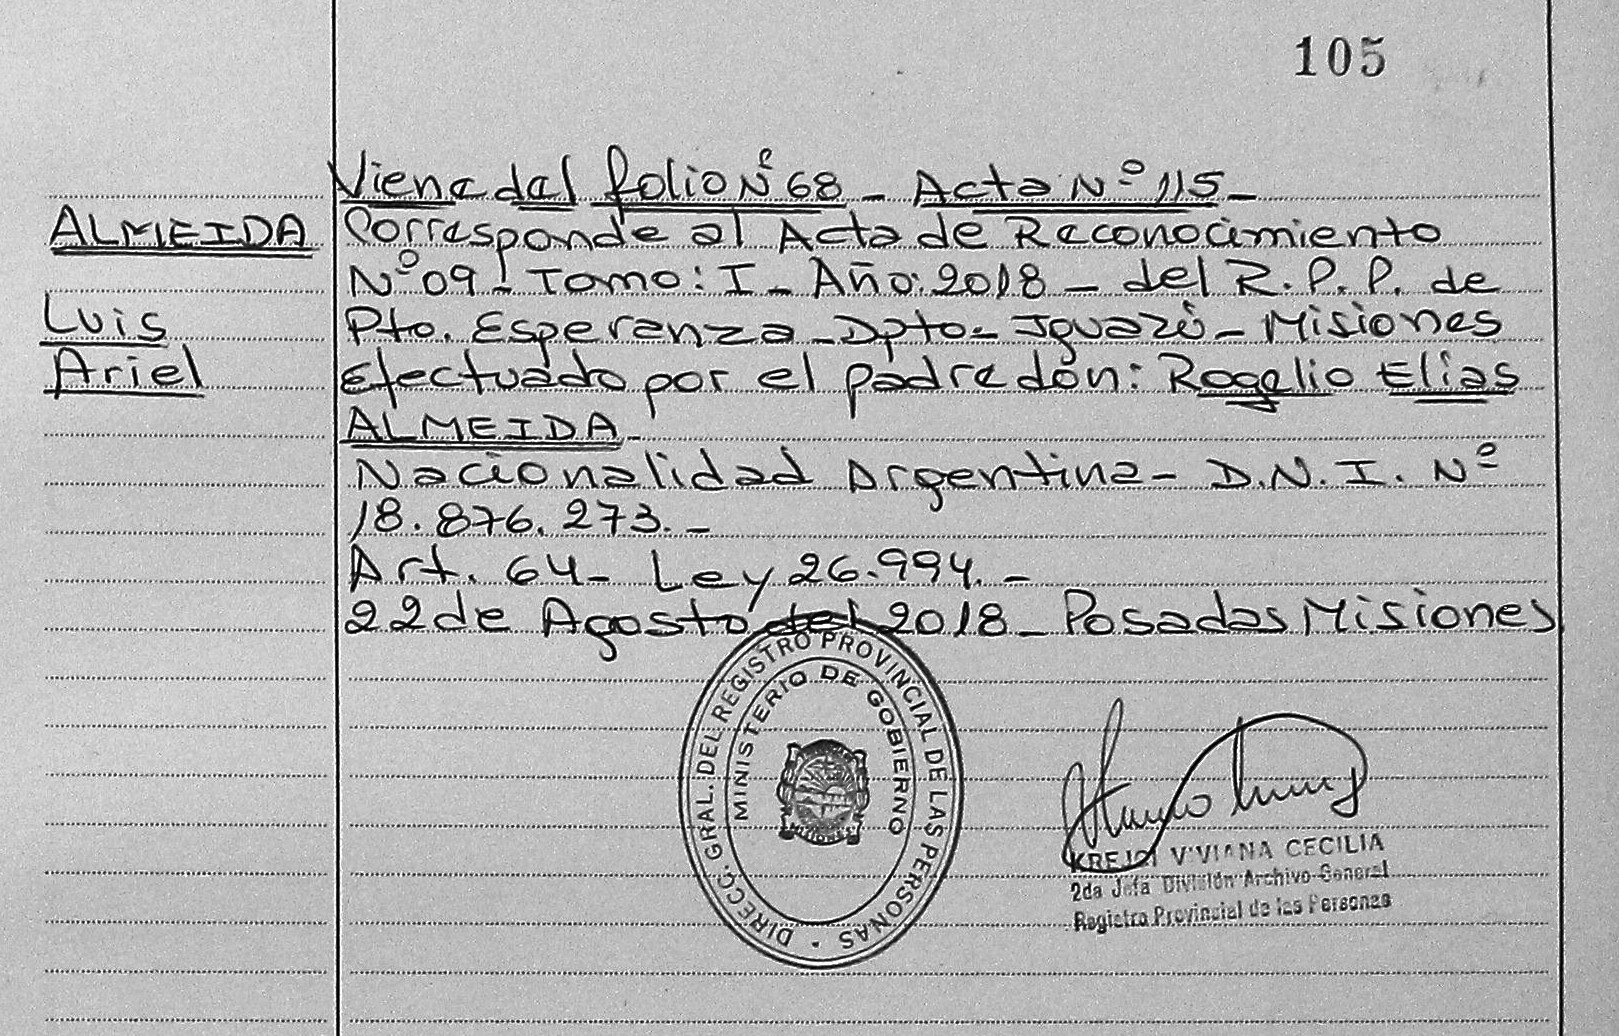 105
Viene del folio Nº 68 - Acta Nº 115 -
ALMEIDA
Corresponde al Acta de Reconocimiento
Nº 09 - Tomo: I - Año: 2018 - del R. P. P. de
Luis
Pto. Esperanza - Dpto - Iguazú - Misiones
Ariel
efectuado por el padre don: Rogelio Elias
ALMEIDA -
Nacionalidad Argentina - D.N.I. Nº
18.876.273. -
Art. 64 - Ley 26.994. -
22 de Agosto del 2018 - Posadas Misiones
DIRECC. GRAL. DEL REGISTRO PROVINCIAL DE LAS PERSONAS
MINISTERIO DE GOBIERNO
MISIONES
KREJCI VIVIANA CECILIA
2da Jefa División Archivo General
Registro Provincial de las Personas